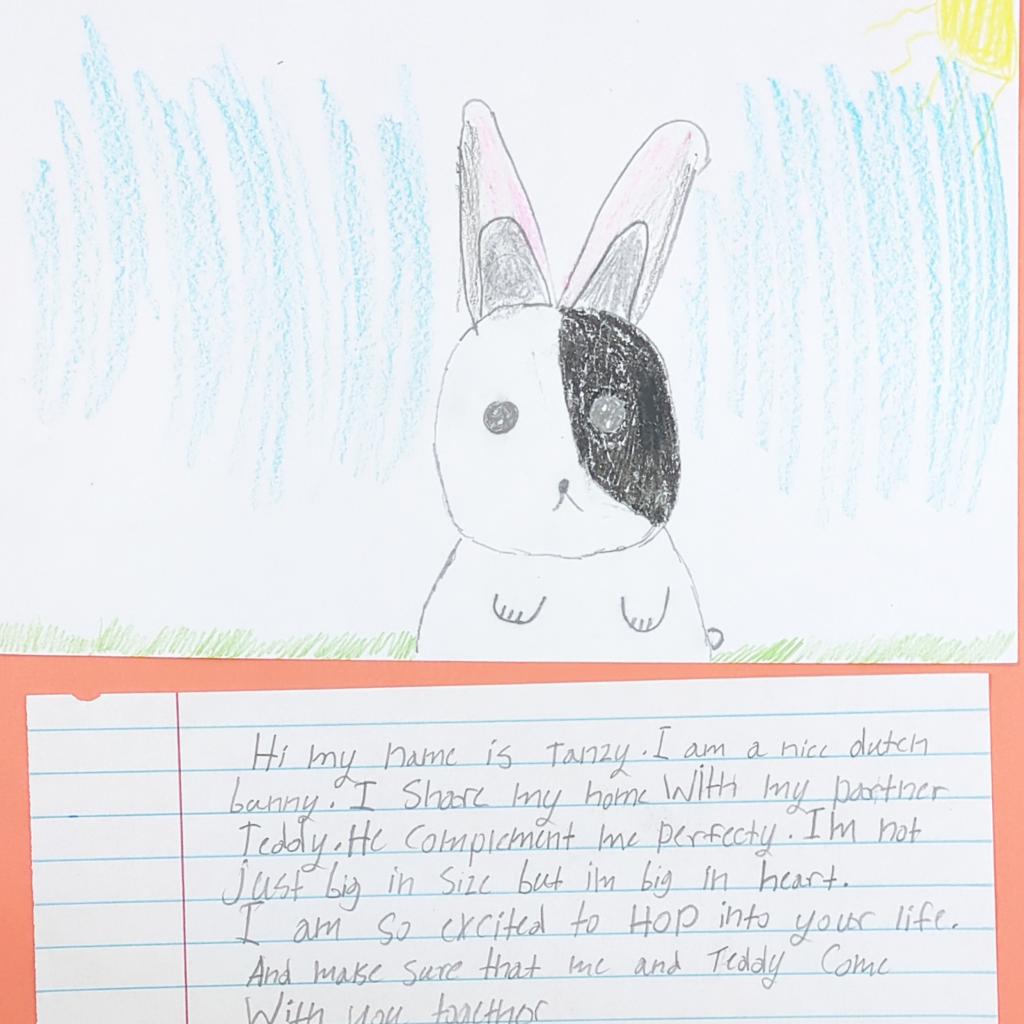 Hi my name is Tanzy. I am a nice dutch
bunny. I Share my home With my partner
Teddy. He complement me perfecty. I'm not
just big in size but i'm big in heart.
I am so excited to HOP into your life.
And make sure that me and Teddy Come
With you together